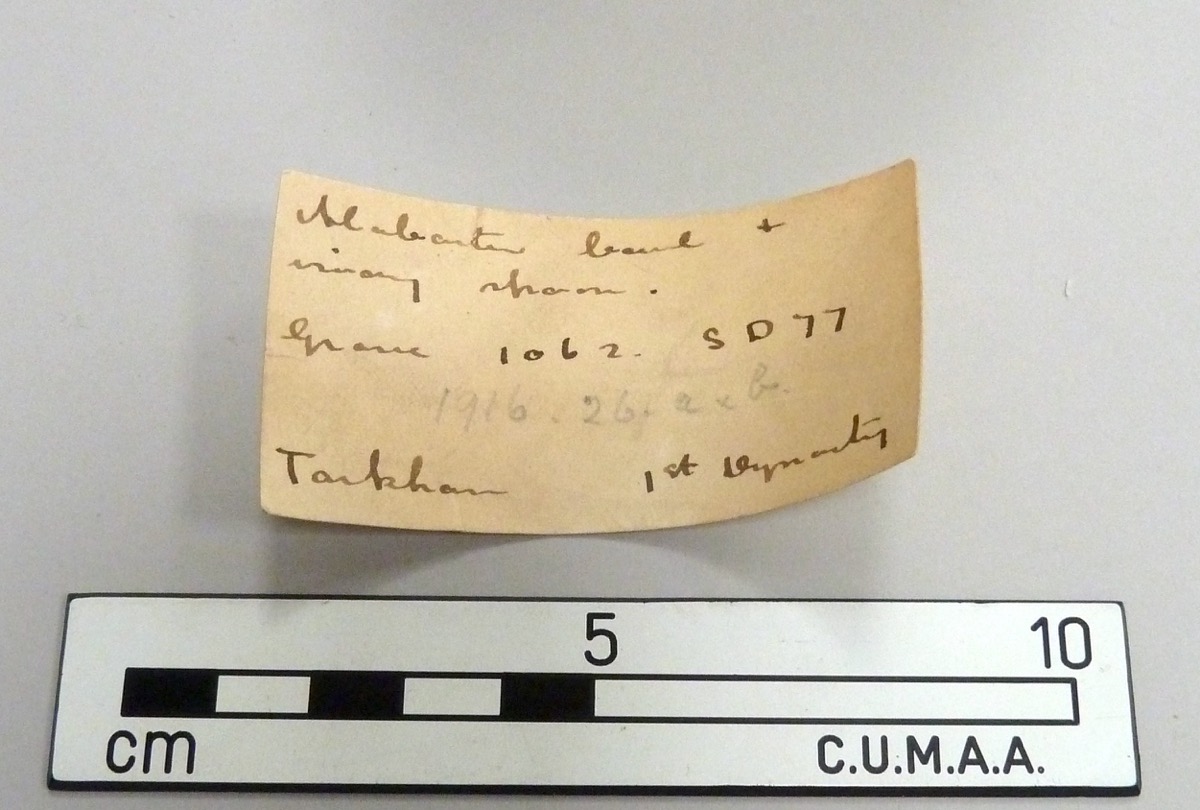 Alabaster bowl +
ivory spoon.
Grave 1062. SD 77
1916.26.a & b.
Tarkhan 1st Dynasty
5 10
cm C.U.M.A.A.